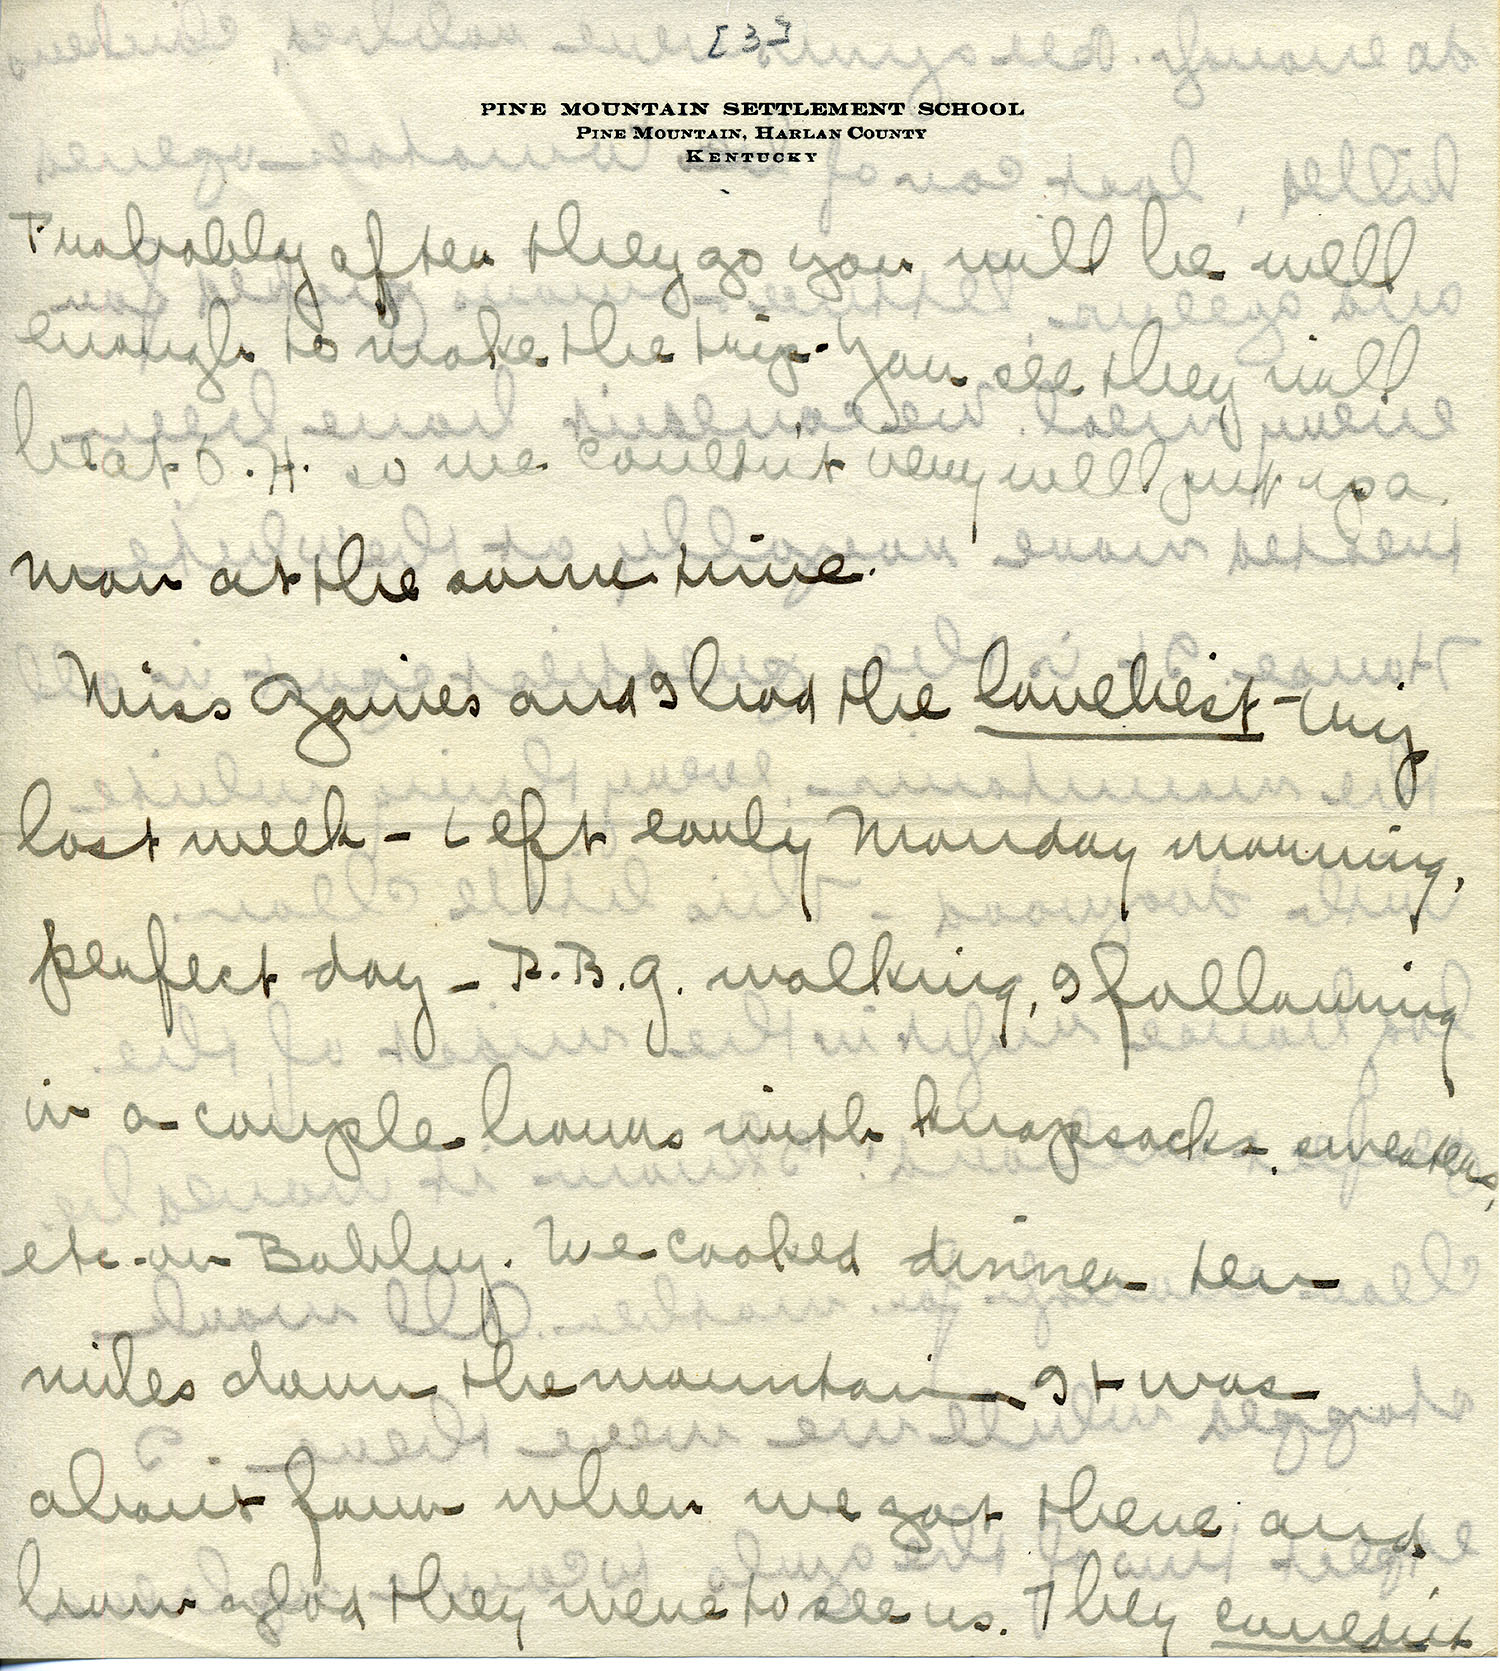 [3]
PINE MOUNTAIN SETTLEMENT SCHOOL
PINE MOUNTAIN, HARLAN COUNTY
KENTUCKY
Probably after they go you will be well
enough to make the trip. You see they will
be at O.H. so we couldn't very well put up a
man at the same time.
Miss Gaines and I had the loveliest trip
last week - Left early Monday morning,
perfect day - R.B.G. walking, I following
in a couple hours with knapsacks, sweaters,
etc. on Bobby. We cooked dinner ten
miles down the mountain. It was
about four when we got there and
how glad they were to see us. They couldn't